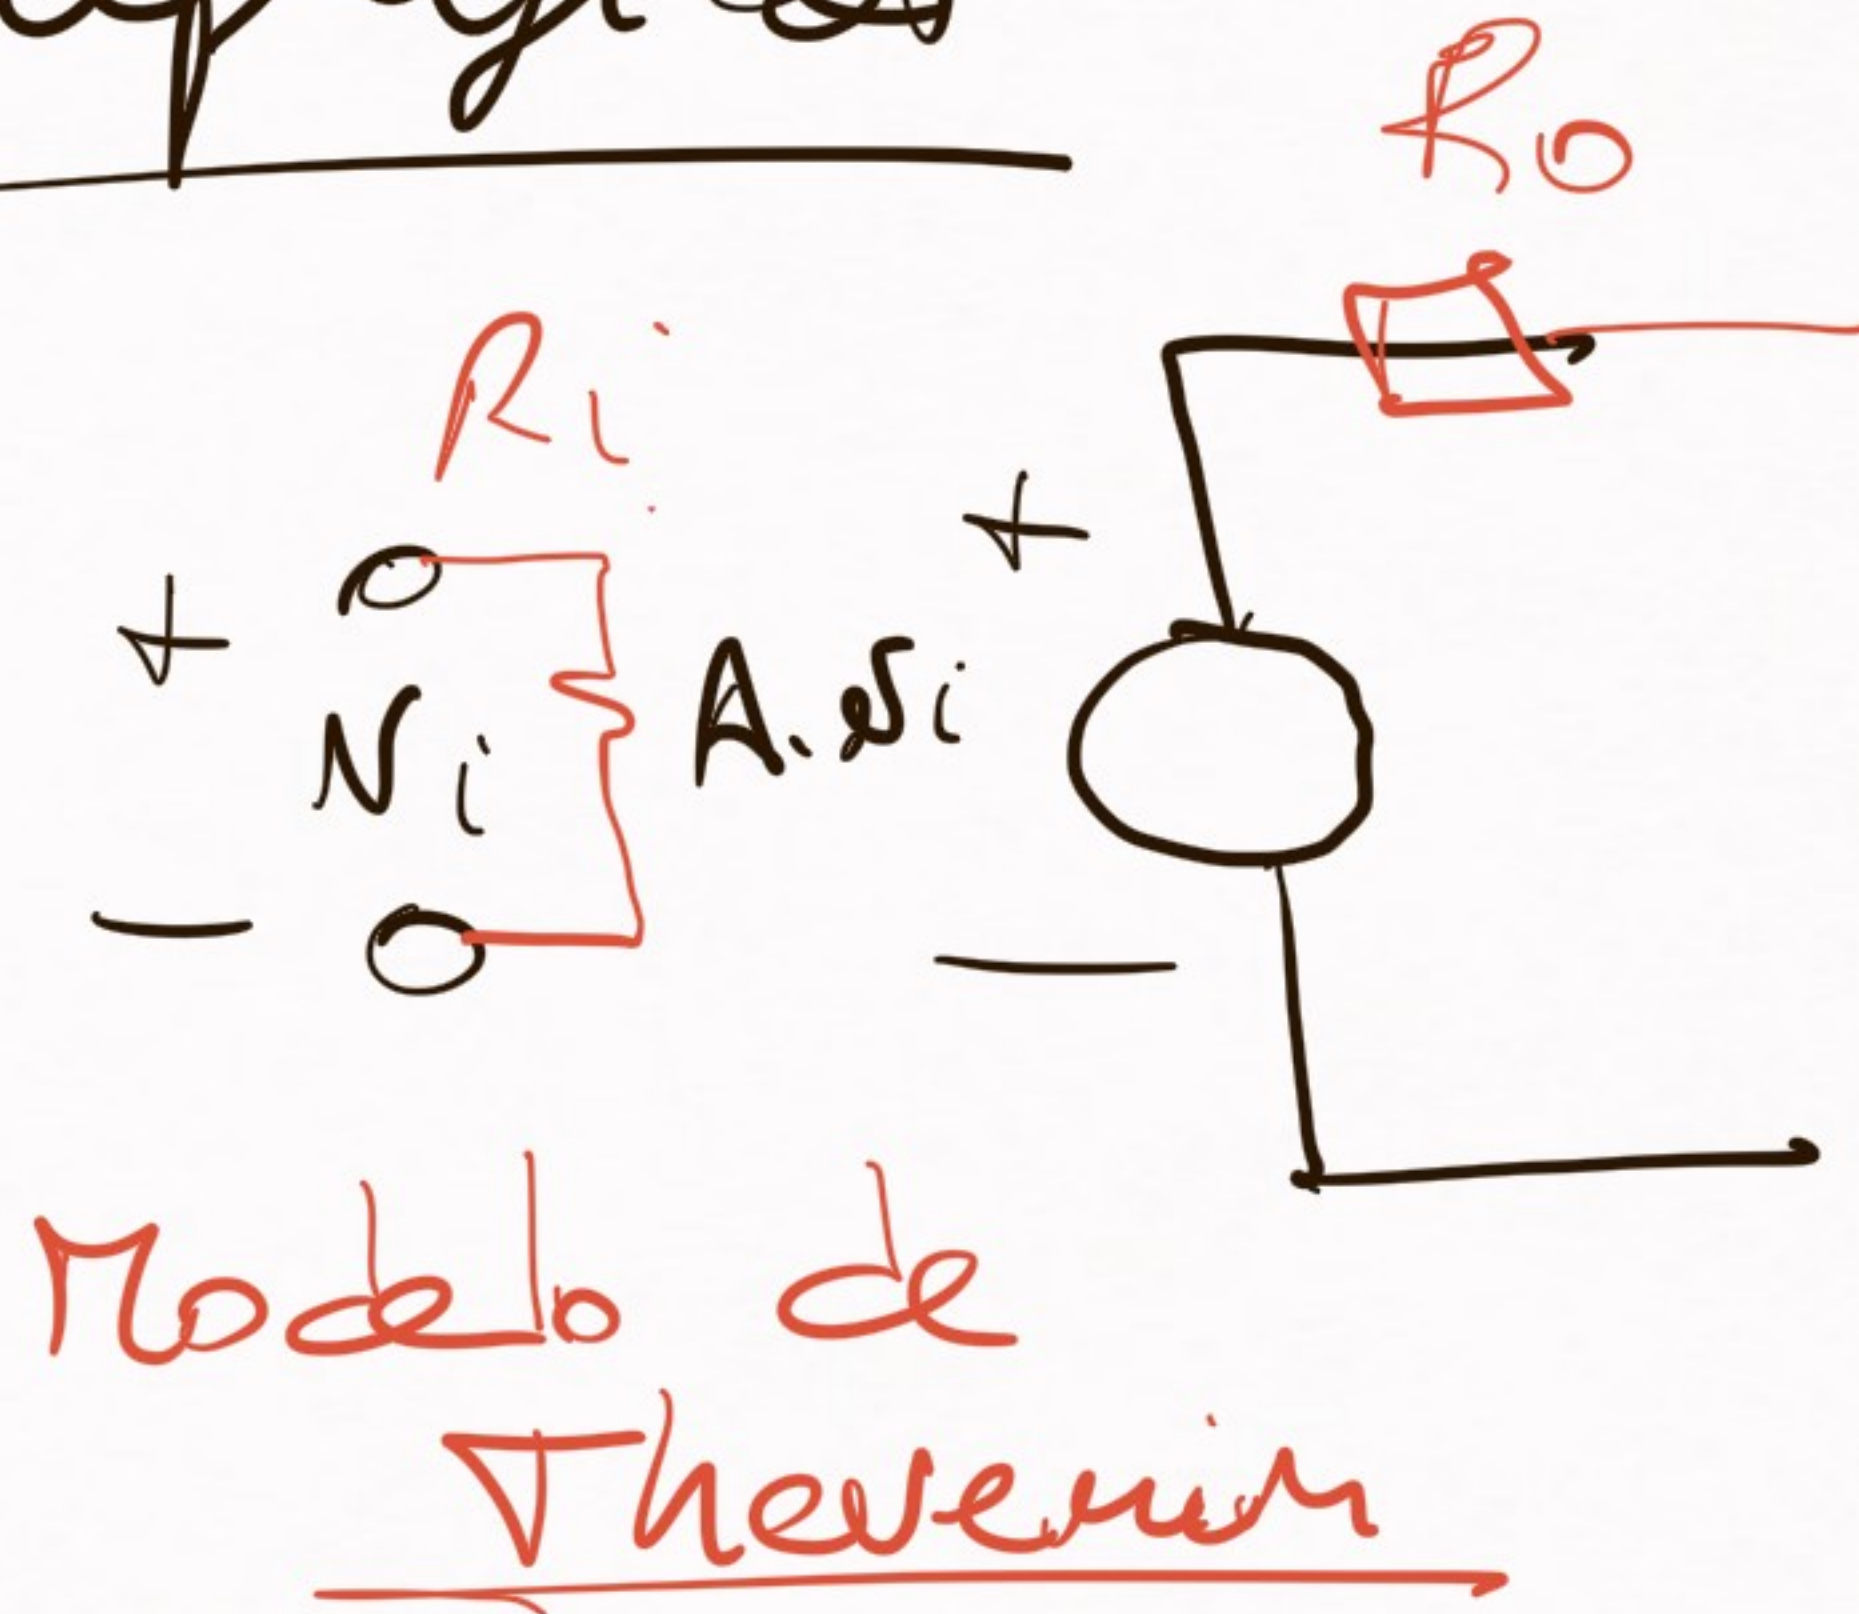 Ro
Ri
+
+
Ni
A.vi
-
-
Modelo de
Thevenin